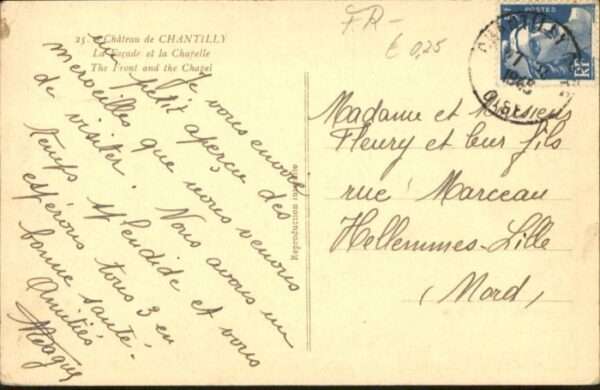 25. - Château de CHANTILLY
La Façade et la Chapelle
The Front and the Chapel
F.R-
€ 0,25
CHANTILLY
1949
OISE
RF
Je vous envoie
un petit aperçu des
merveilles que nous venons
de visiter. Nous avons un
temps splendide et vous
espérons tous 3 en
bonne santé.
Amitiés
Reproduction interdite
Madame et Monsieur
Fleury et leur fils
rue Marceau
Hellemmes-Lille
(Nord)